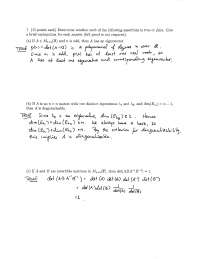 7. [10 points each] Determine whether each of the following assertions is true or false. Give
a brief explanation for each answer (full proof is not required).
(a) If A ∈ Mₙₓₙ(ℝ) and n is odd, then A has an eigenvector.
True p(x) = det(A-xI) is a polynomial of degree n over ℝ.
Since n is odd, p(x) has at least one real root, so
A has at least one eigenvalue and corresponding eigenvector.
(b) If A is an n × n matrix with two distinct eigenvalues λ₁ and λ₂ and dim(E_λ₁) = n − 1,
then A is diagonalizable.
True Since λ₂ is an eigenvalue, dim(E_λ₂) ≥ 1. Hence
dim(E_λ₁) + dim(E_λ₂) ≥ n. We always have ≤ here, so
dim(E_λ₁) + dim(E_λ₂) = n. By the criterion for diagonalizability,
this implies A is diagonalizable.
(c) If A and B are invertible matrices in Mₙₓₙ(ℝ), then det(ABA⁻¹B⁻¹) = 1.
True det(ABA⁻¹B⁻¹) = det(A) det(B) det(A⁻¹) det(B⁻¹)
= det(A) det(B) 1/det(A) 1/det(B)
= 1.